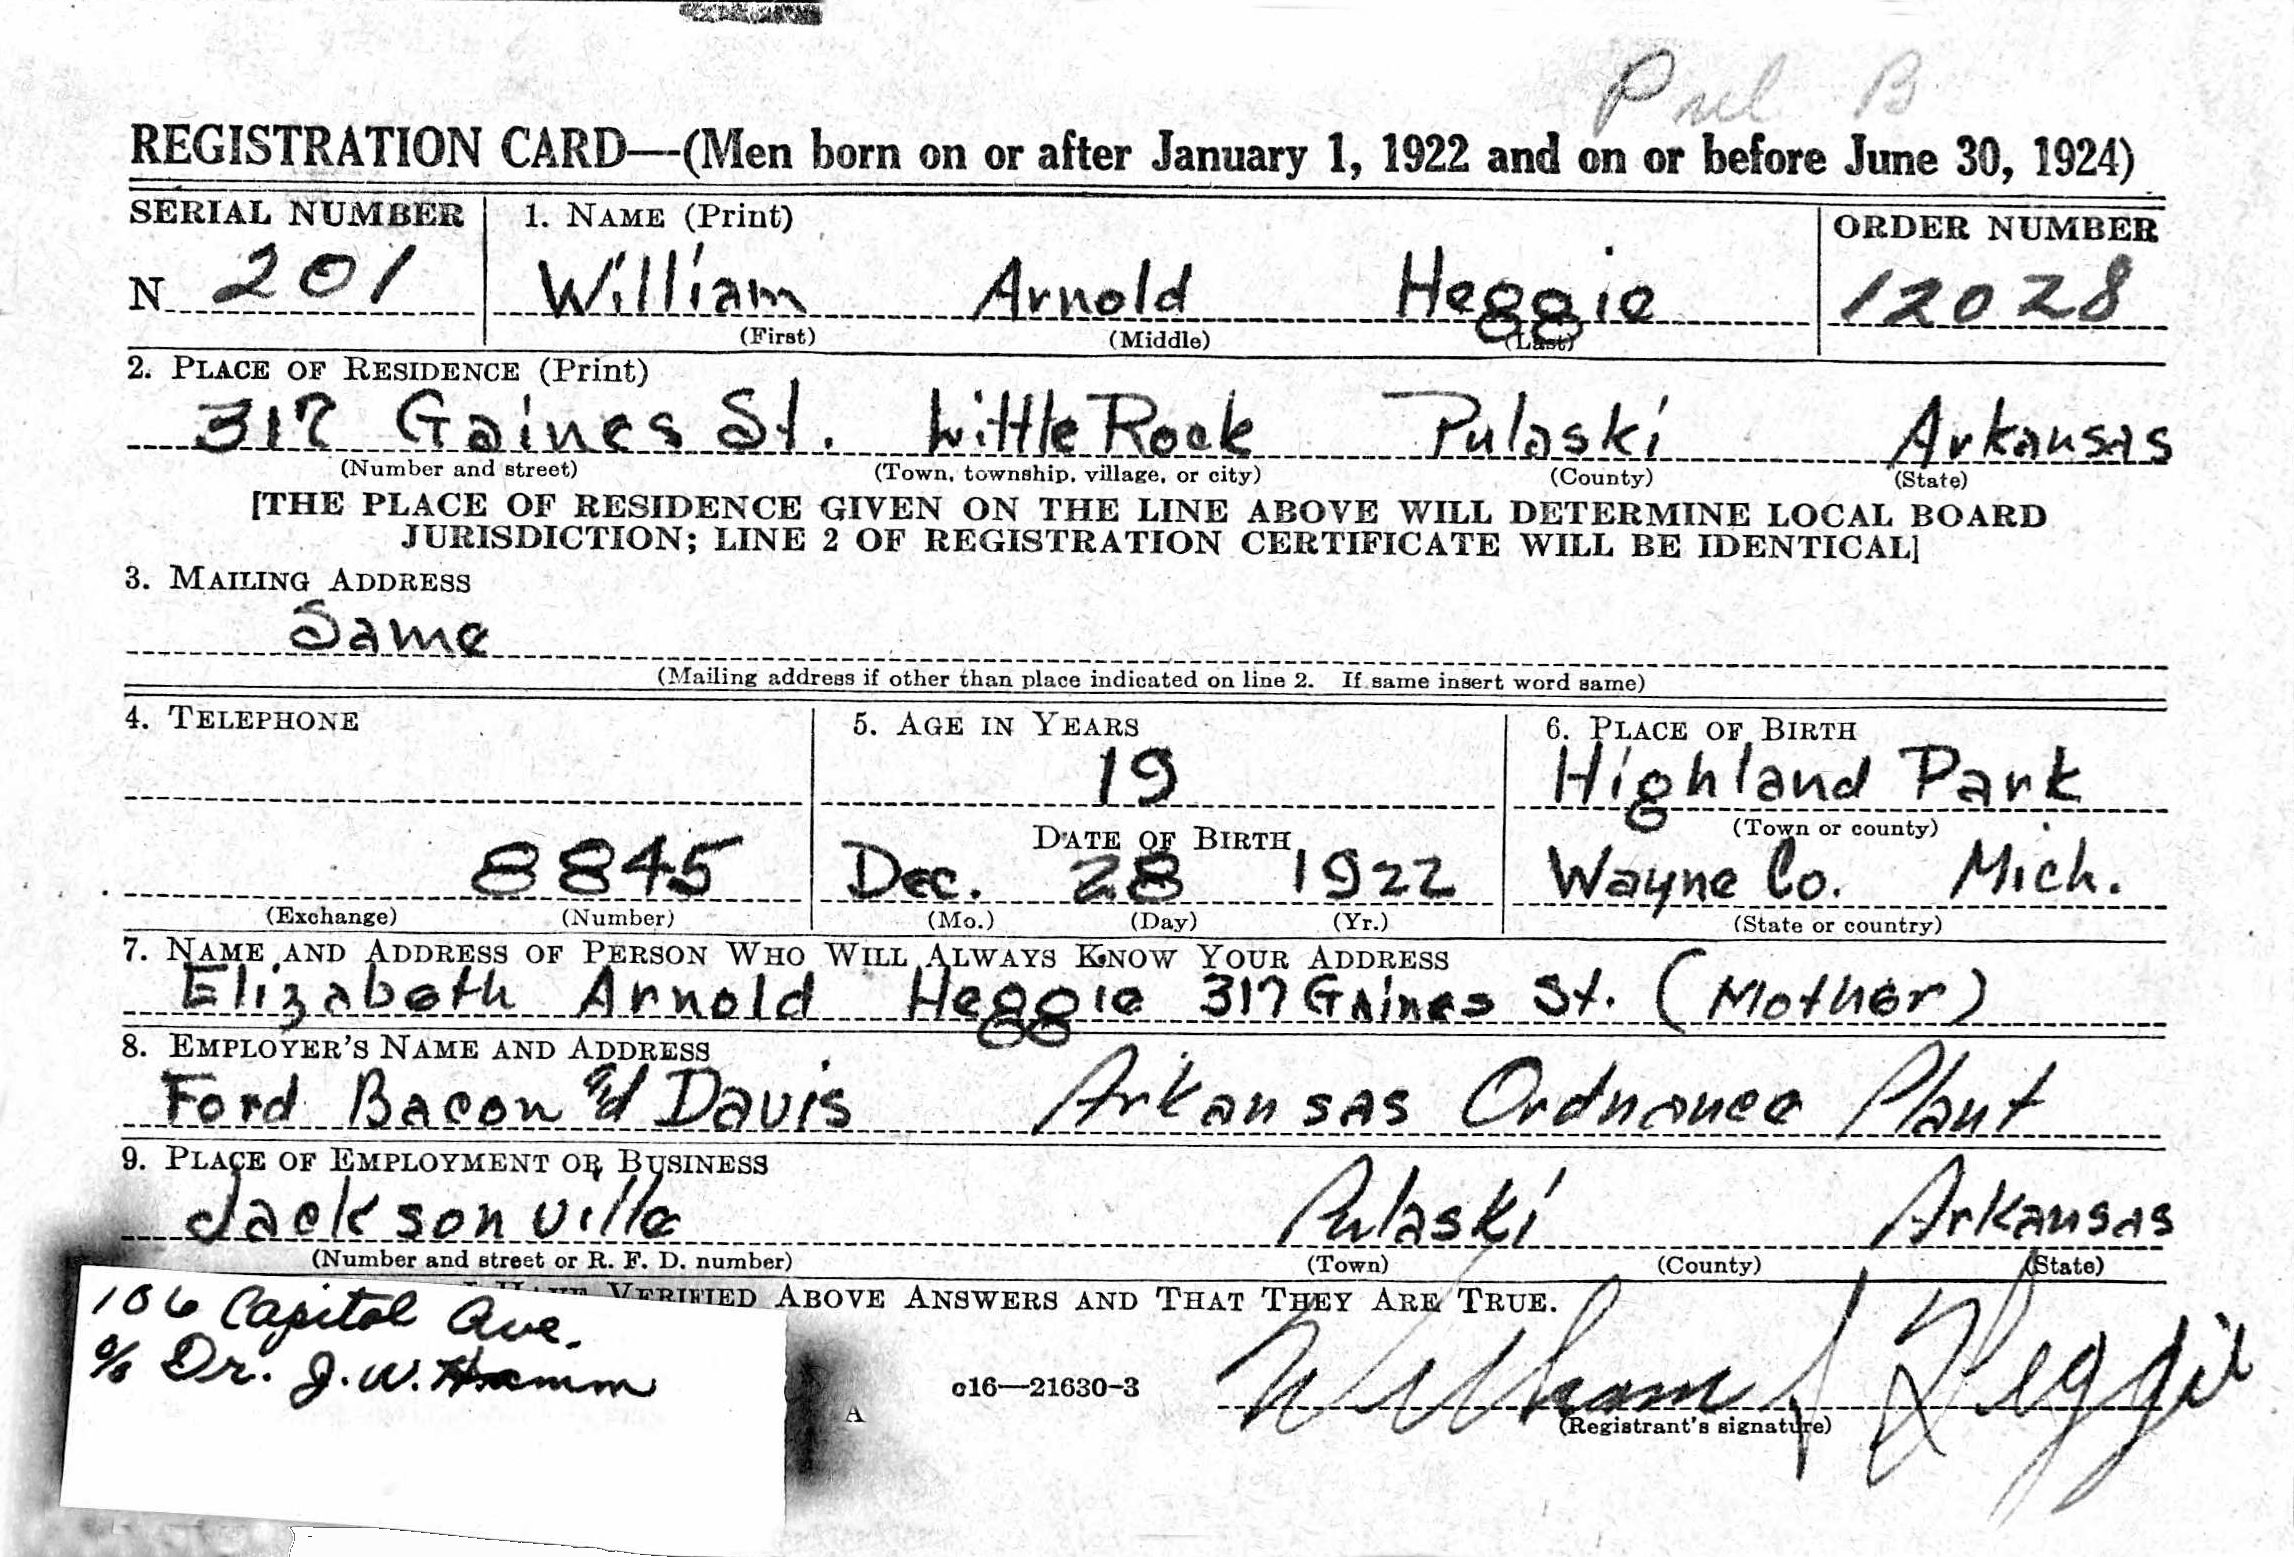 Pul B
REGISTRATION CARD—(Men born on or after January 1, 1922 and on or before June 30, 1924)
SERIAL NUMBER 1. NAME (Print) ORDER NUMBER
N 201 William Arnold Heggie 12028
(First) (Middle) (Last)
2. PLACE OF RESIDENCE (Print)
317 Gaines St. Little Rock Pulaski Arkansas
(Number and street) (Town, township, village, or city) (County) (State)
[THE PLACE OF RESIDENCE GIVEN ON THE LINE ABOVE WILL DETERMINE LOCAL BOARD
JURISDICTION; LINE 2 OF REGISTRATION CERTIFICATE WILL BE IDENTICAL]
3. MAILING ADDRESS
Same
(Mailing address if other than place indicated on line 2. If same insert word same)
4. TELEPHONE 5. AGE IN YEARS 6. PLACE OF BIRTH
19 Highland Park
DATE OF BIRTH (Town or county)
8845 Dec. 28 1922 Wayne Co. Mich.
(Exchange) (Number) (Mo.) (Day) (Yr.) (State or country)
7. NAME AND ADDRESS OF PERSON WHO WILL ALWAYS KNOW YOUR ADDRESS
Elizabeth Arnold Heggie 317 Gaines St. (Mother)
8. EMPLOYER'S NAME AND ADDRESS
Ford Bacon and Davis Arkansas Ordnance Plant
9. PLACE OF EMPLOYMENT OR BUSINESS
Jacksonville Pulaski Arkansas
(Number and street or R. F. D. number) (Town) (County) (State)
I HAVE VERIFIED ABOVE ANSWERS AND THAT THEY ARE TRUE.
106 Capitol Ave.
c/o Dr. J. W. Hamm
A c16—21630-3 William Heggie
(Registrant's signature)